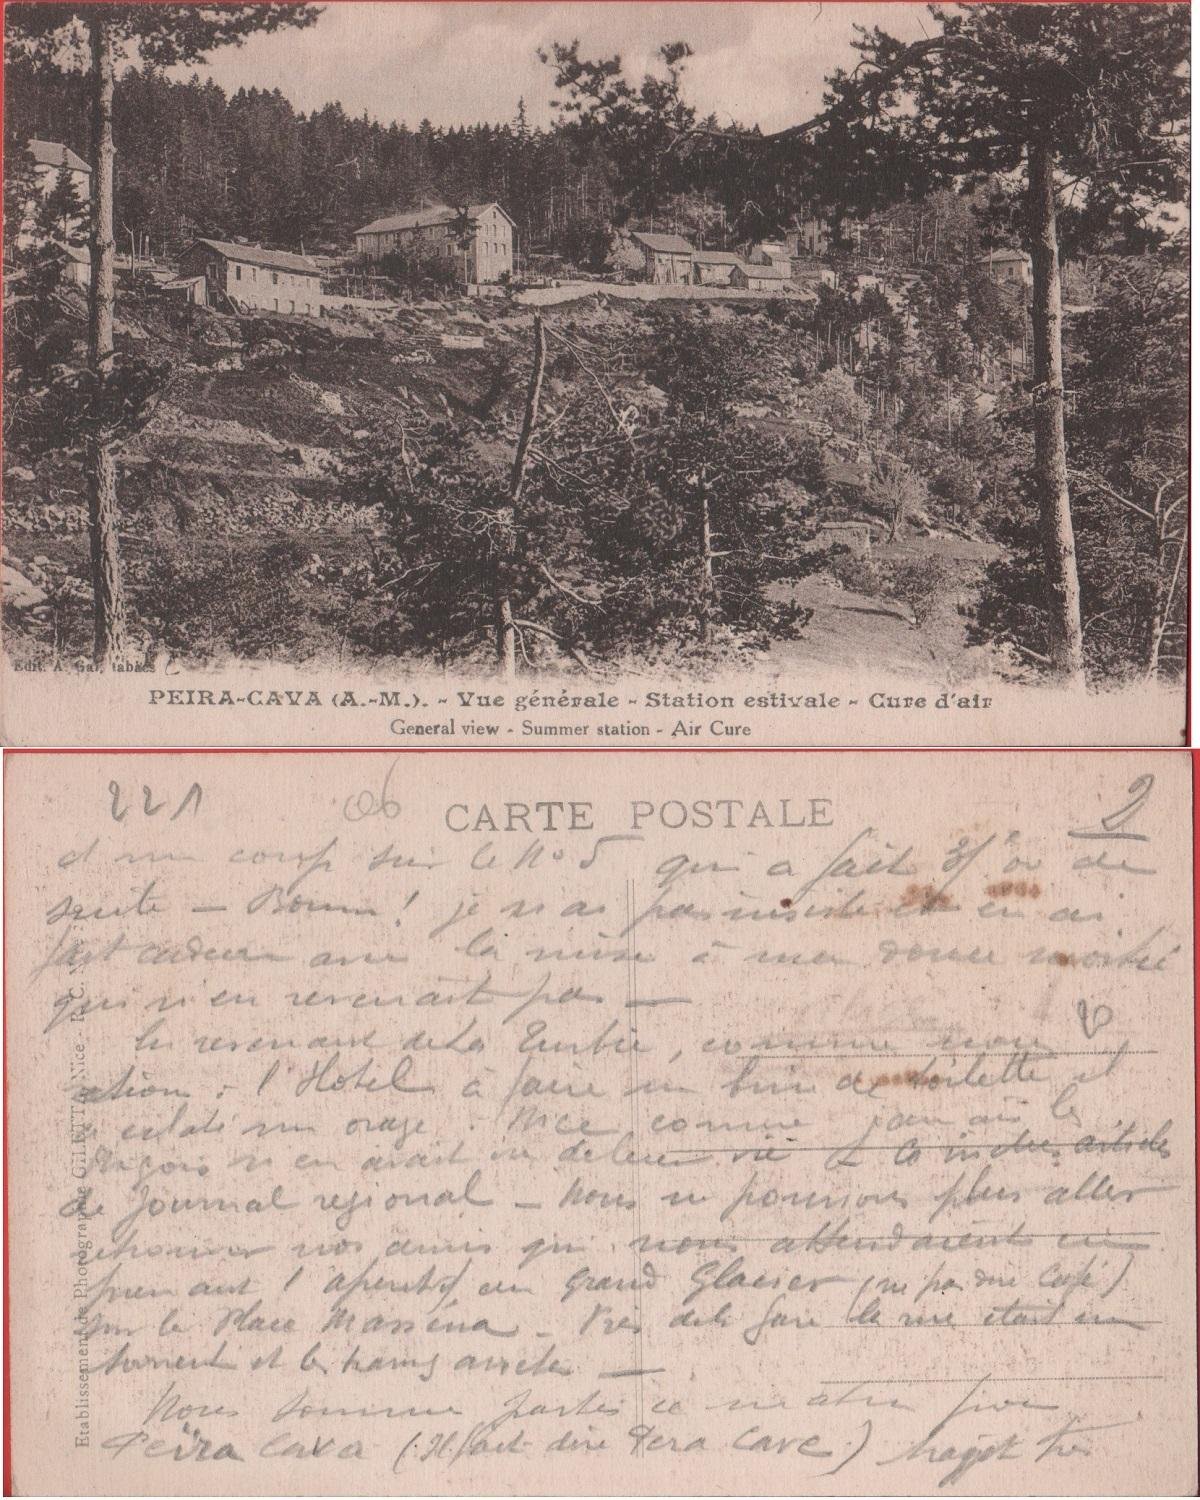 Edit. A. Gar, tabacs
PEIRA-CAVA (A.-M.). - Vue générale - Station estivale - Cure d'air
General view - Summer station - Air Cure
221
06
CARTE POSTALE
2
et un coup sur le No 5 qui a fait de
suite — Boum! je n'ai pas insisté et en ai
fait cadeau avec la mise à ma douce moitié
qui n'en revenait pas —
En revenant de La Turbie, comme nous
étions à l'Hotel à faire un brin de toilette il
a éclaté un orage. Nice comme jamais les
Niçois n'en avait vu de leur vie
de Journal regional — Nous ne pouvions plus aller
retrouver nos amis qui nous attendaient en
prenant l'aperitif au Grand Glacier (ne pas dire Café)
sur la Place Masséna — Près de la gare la rue était un
torrent et les trams arretés —
Nous sommes partis ce matin pour
Peïra Cava (Il faut dire Pera Cave) trajet très
Etablissement de Photographie GILETTA, Nice R. C. N.